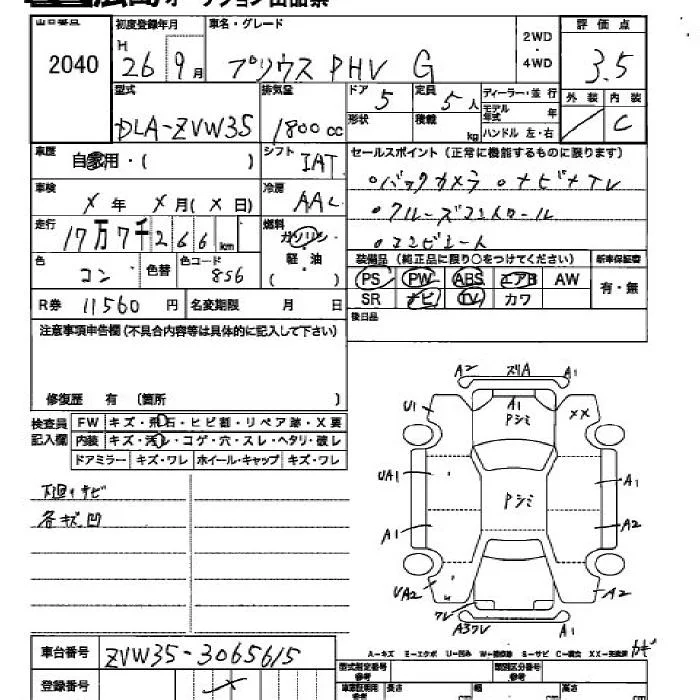 オークション出品票
出品番号 2040
初度登録年月 H 26 9月
車名・グレード プリウス PHV G
2WD ・ 4WD
評価点 3.5
外装 内装 C
型式 DLA-ZVW35
排気量 1800 cc
ドア 5 形状
定員 5人 積載 kg
ディーラー・並行
モデル年式 年
ハンドル 左・右
車歴 自家用・( )
シフト IAT
セールスポイント (正常に機能するものに限ります)
○バックカメラ ○ナビ+TV
○クルーズコントロール
○コンビシート
車検 X 年 X 月 ( X 日)
冷房 AAC
走行 17万7千266km
燃料 ガソリン 軽油 ( )
色 コン 色替 色コード 8S6
装備品 (純正品に限り○をつけてください) 新車保証書
PS PW ABS エアB AW 有・無
SR ナビ TV カワ
R券 11560 円 名変期限 月 日
後日品
注意事項申告欄(不具合内容等は具体的に記入して下さい)
修復歴 有 〔箇所 〕
検査員記入欄
FW キズ・飛石・ヒビ割・リペア跡・X要
内装 キズ・汚レ・コゲ・穴・スレ・ヘタリ・破レ
ドアミラー キズ・ワレ ホイール・キャップ キズ・ワレ
下廻りサビ
各キズ凹
A2 ズリA A1
U1 A1 Pシミ XX
UA1 Pシミ A1
A1 A2
UA2 A2
ワレ A3ワレ A1
車台番号 ZVW35-3065615
登録番号
A=キズ E=エクボ U=凹み W=補修跡 S=サビ C=腐食 XX=交換済
型式指定番号 参考
類別区分番号 参考
車庫証明用 参考 長さ cm 幅 cm 高さ cm